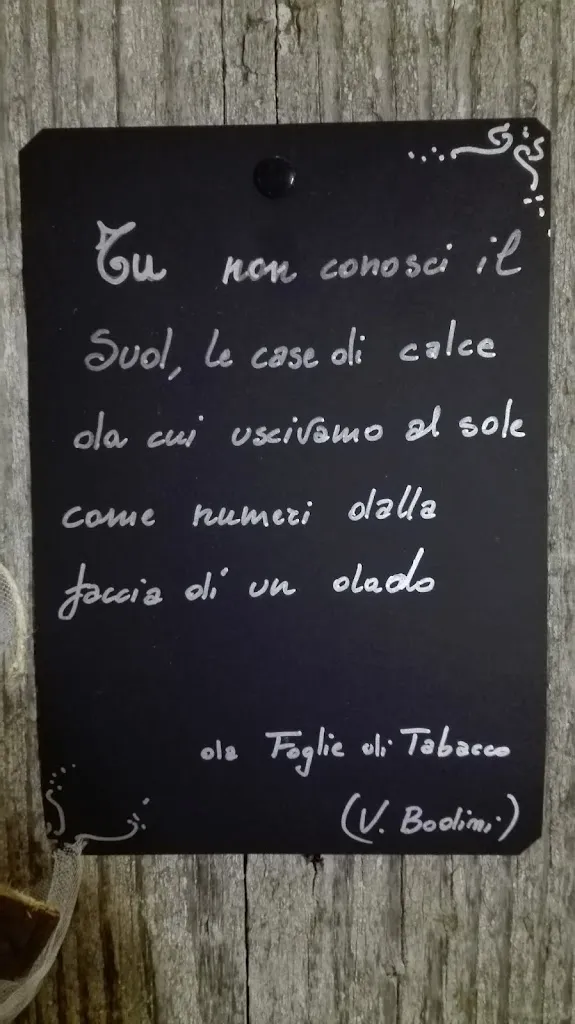 Tu non conosci il
Sud, le case di calce
da cui uscivamo al sole
come numeri dalla
faccia di un dado
da Foglie di Tabacco
(V. Bodini)